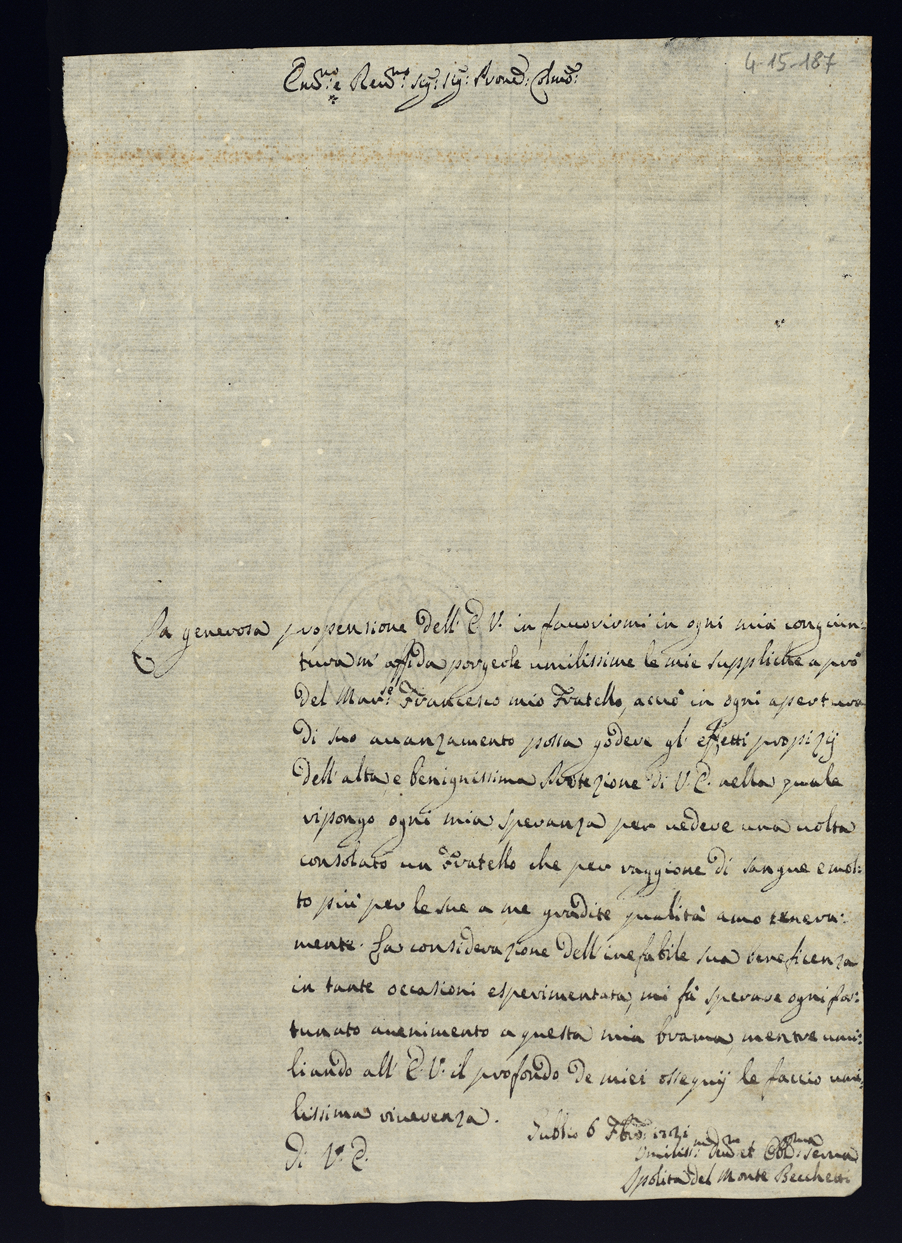 4-15-187
Em.mo e Rev.mo Sig.r Sig.r Pron.e Colmo:
La generosa propensione dell'E.V. in favorirmi in ogni mia congiun:
tura m'affida porgerle umilissime le mie suppliche a prò
del Mar.e Francesco mio Fratello, acciò in ogni apertura
di suo avanzamento possa godere gl'effetti propizij
dell'alta, e benignissima Protezione di V.E. nella quale
ripongo ogni mia speranza per vedere una volta
consolato un Fratello che per raggione di sangue e mol:
to più per le sue a me gradite qualità amo tenera:
mente. La considerazione dell'inefabile sua beneficenza
in tante occasioni esperimentata, mi fà sperare ogni for:
tunato avenimento a questa mia brama, mentre umi:
liando all'E.V. il profondo de miei ossequij le faccio umi:
lissima riverenza.
Di V.E.
Gubbio 6 Fbro:
Umiliss.ma et Obl.ma Serva
Ipolita del Monte Becchetti